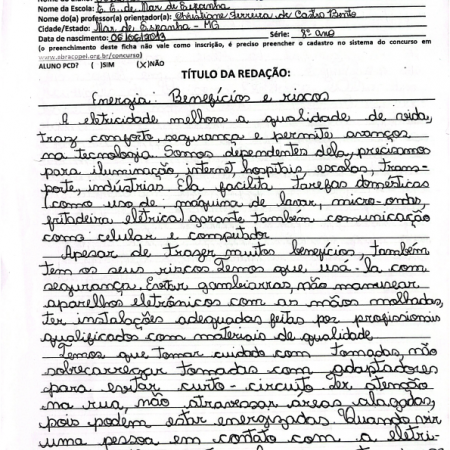 Nome da Escola: E. E. de Mar de Espanha
Nome do(a) professor(a) orientador(a): Christiane Ferreira de Castro Bento
Cidade/Estado: Mar de Espanha - MG
Data de nascimento: 06/06/2013 Série: 8º ano
(o preenchimento deste ficha não vale como inscrição, é preciso preencher o cadastro no sistema do concurso em
www.abracopel.org.br/concurso)
ALUNO PCD? ( )SIM (X)NÃO
TÍTULO DA REDAÇÃO:
Energia: Benefícios e riscos
A eletricidade melhora a qualidade de vida,
traz conforto, segurança e permite avanços
na tecnologia. Somos dependentes dela, precisamos
para iluminação, internet, hospitais, escolas, trans-
porte, indústrias. Ela facilita tarefas domésticas
(como uso de: máquina de lavar, micro-ondas,
fritadeira elétrica) garante também comunicação
como celular e computador.
Apesar de trazer muitos benefícios, também
tem os seus riscos. Temos que usá-la com
segurança. Evitar gambiarras, não manusear
aparelhos eletrônicos com as mãos molhadas,
ter instalações adequadas feitas por profissionais
qualificados com materiais de qualidade.
Temos que tomar cuidado com tomadas, não
sobrecarregar tomadas com adaptadores
para evitar curto-circuito. Ter atenção
na rua, não atravessar áreas alagadas,
pois podem estar energizadas. Quando vir
uma pessoa em contato com a eletri-